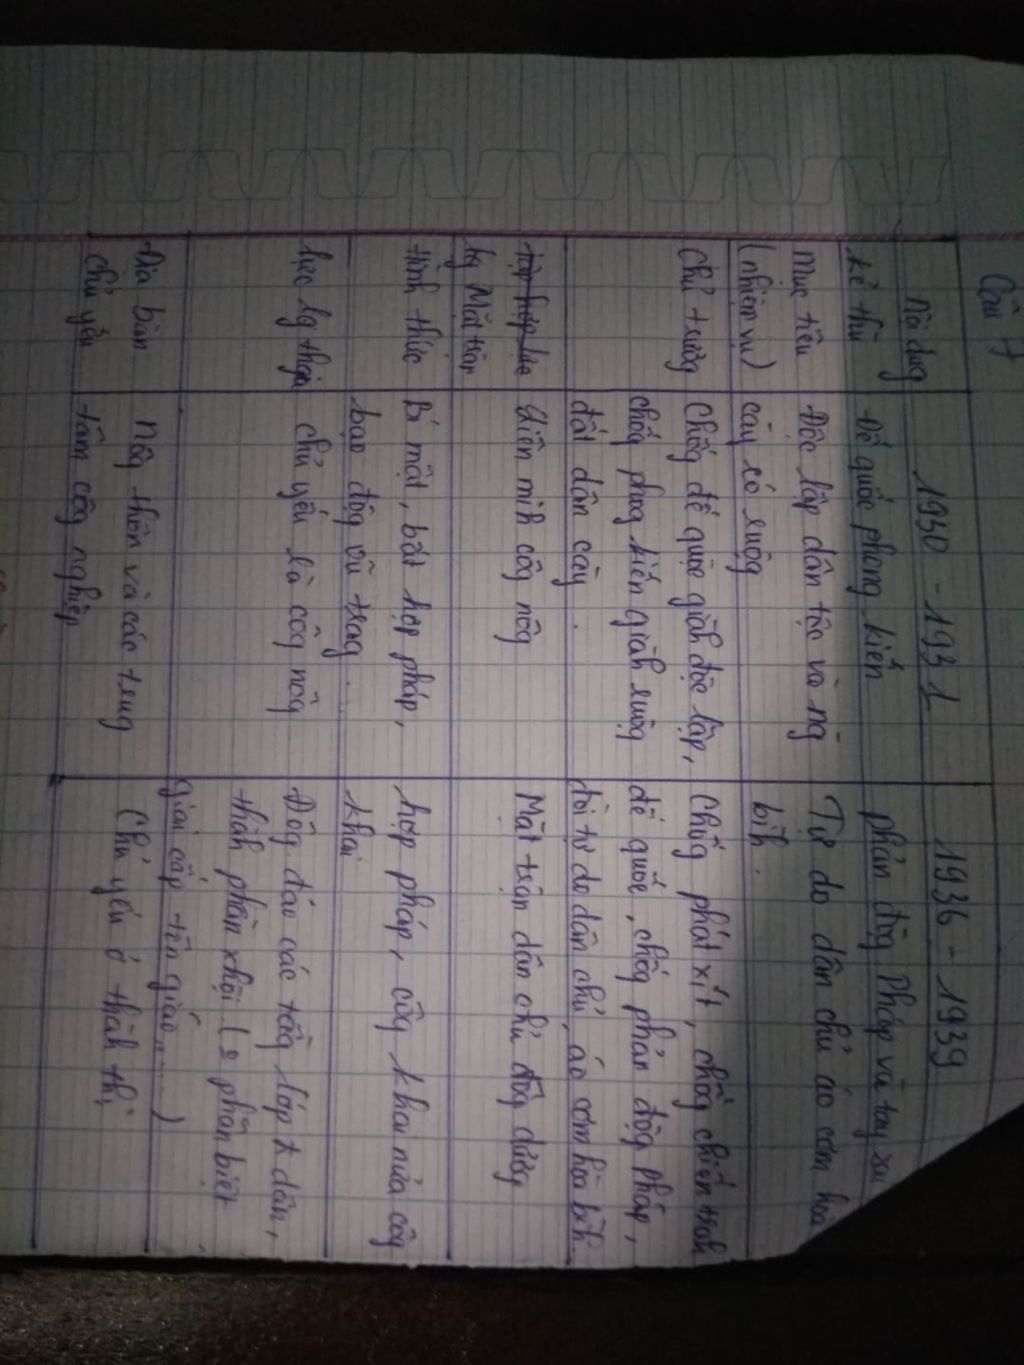 Câu 7
Nội dung
1930 - 1931
1936 - 1939
kẻ thù
Đế quốc phong kiến
phản độg Pháp và tay sai
Mục tiêu
(nhiệm vụ)
Độc lập dân tộc và ng
cày có ruộg
Tự do dân chủ áo cơm hoà
bìh.
Chủ trươg
Chốg đế quốc giàh độc lập,
chốg phog kiến giàh ruộg
đất dân cày.
Chốg phát xít, chốg chiến trah
đế quốc, chốg phản độg Pháp,
đòi tự do dân chủ, áo cơm hòa bìh.
tập hợp lực
lg Mặt trận
Liên mih côg nôg
Mặt trận dân chủ đôg dươg
Hìh thức
Bí mật, bất hợp pháp,
bạo độg vũ trag...
hợp pháp, côg khai nửa côg
khai
lực lg tham
chủ yếu là côg nôg
Đôg đảo các tầg lớp
thàh phần xhội (o phân biệt
giai cấp - tôn giáo,......)
Địa bàn
chủ yếu
Nôg thôn và các trug
tâm côg nghiệp
Chủ yếu ở thàh thị